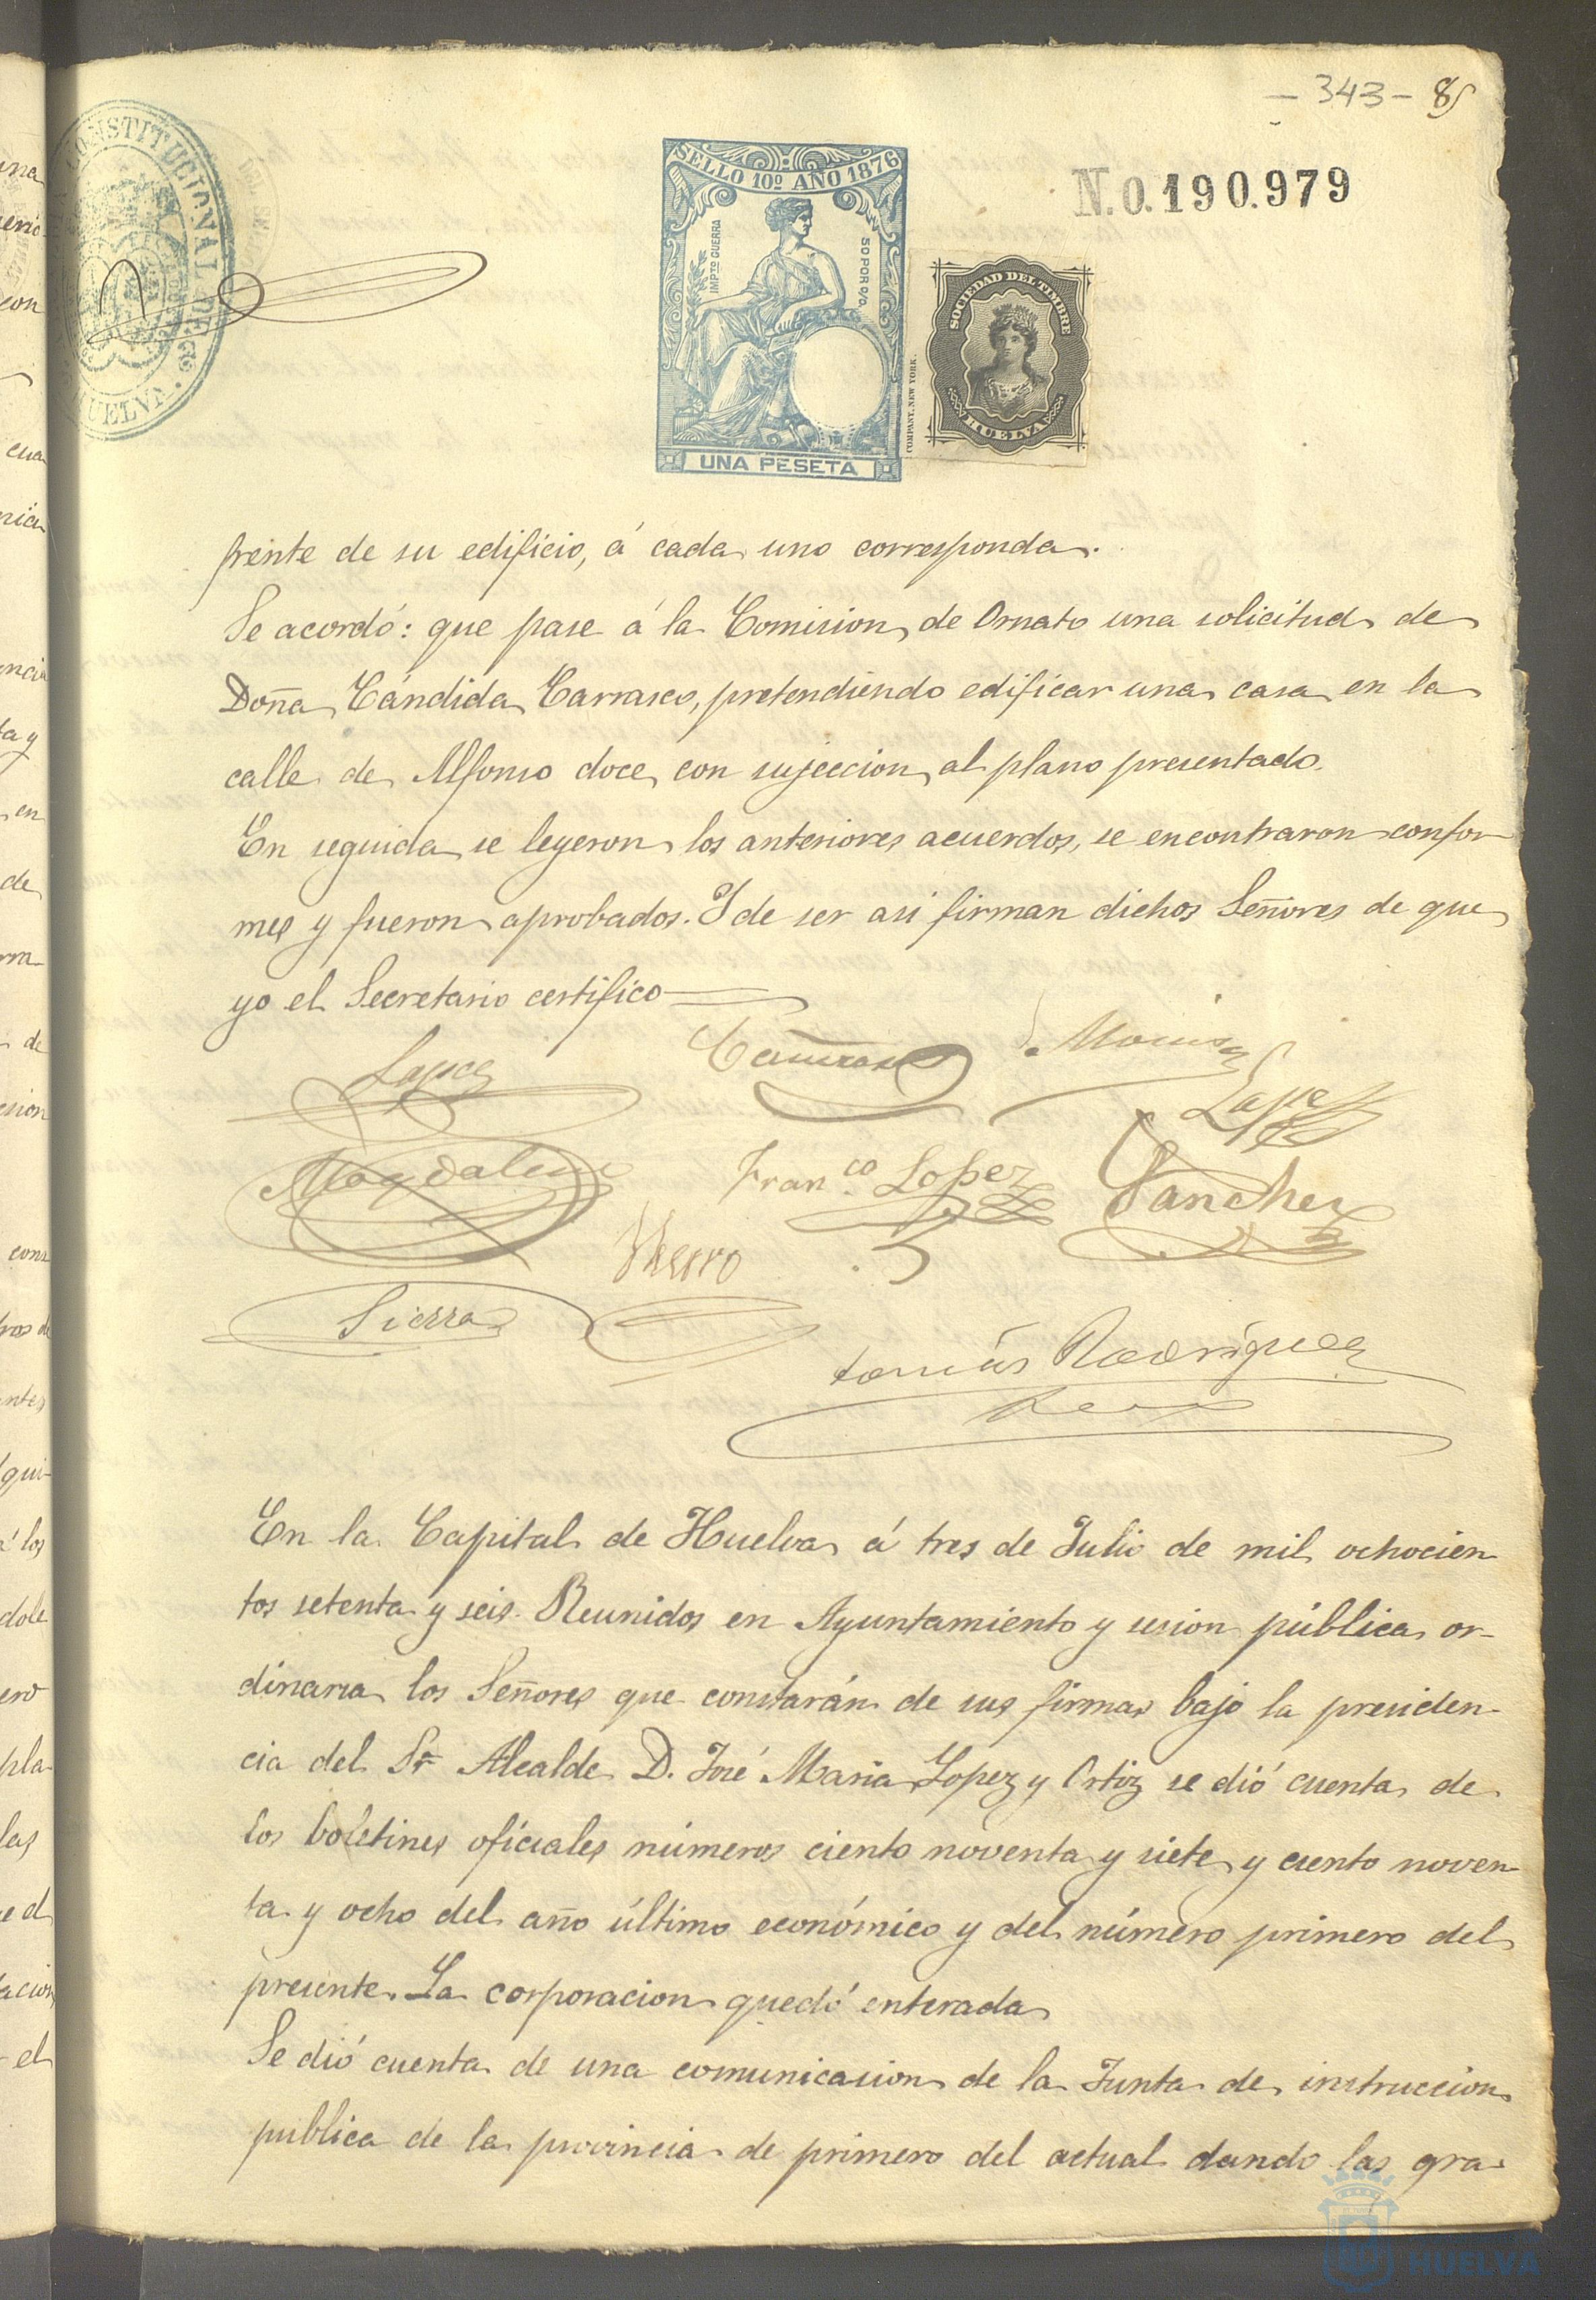 - 343 - 85
CONSTITUCIONAL DE
HUELVA.
SELLO 10º AÑO 1876
IMPTO GUERRA
50 POR 0/0.
UNA PESETA
N.0.190.979
COMPANY. NEW YORK.
SOCIEDAD DEL TIMBRE
HUELVA
frente de su edificio, á cada uno corresponda.
Se acordó: que pase á la Comision de Ornato una solicitud de
Doña Cándida Carrasco, pretendiendo edificar una casa en la
calle de Alfonso doce con sujeccion al plano presentado.
En seguida se leyeron los anteriores acuerdos, se encontraron confor
mes y fueron aprobados. Y de ser asi firman dichos Señores de que
yo el Secretario certifico
Lopez
Lopez
Magdalena
Franco. Lopez
Sanchez
Sierra
tomás Rodriguez
En la Capital de Huelva á tres de Julio de mil ochocien
tos setenta y seis. Reunidos en Ayuntamiento y sesion pública or-
dinaria los Señores que constarán de sus firmas bajo la presiden-
cia del Sr Alcalde D. José Maria Lopez y Ortiz se dió cuenta de
los boletines oficiales números ciento noventa y siete y ciento noven-
ta y ocho del año último económico y del número primero del
presente. La corporacion quedó enterada
Se dió cuenta de una comunicasion de la Junta de instruccion
publica de la provincia de primero del actual dando las gra
HUELVA